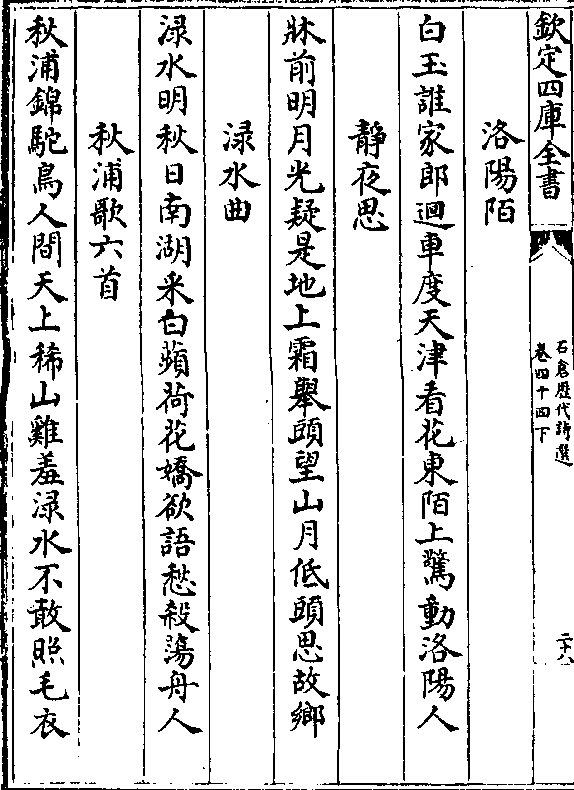 欽定四庫全書
石倉歴代詩選
卷四十四下
二十八
洛陽陌
白玉誰家郎迴車度天津看花東陌上驚動洛陽人
靜夜思
牀前明月光疑是地上霜舉頭望山月低頭思故鄉
渌水曲
渌水明秋日南湖采白蘋荷花嬌欲語愁殺蕩舟人
秋浦歌六首
秋浦錦駝鳥人間天上稀山雞羞渌水不敢照毛衣